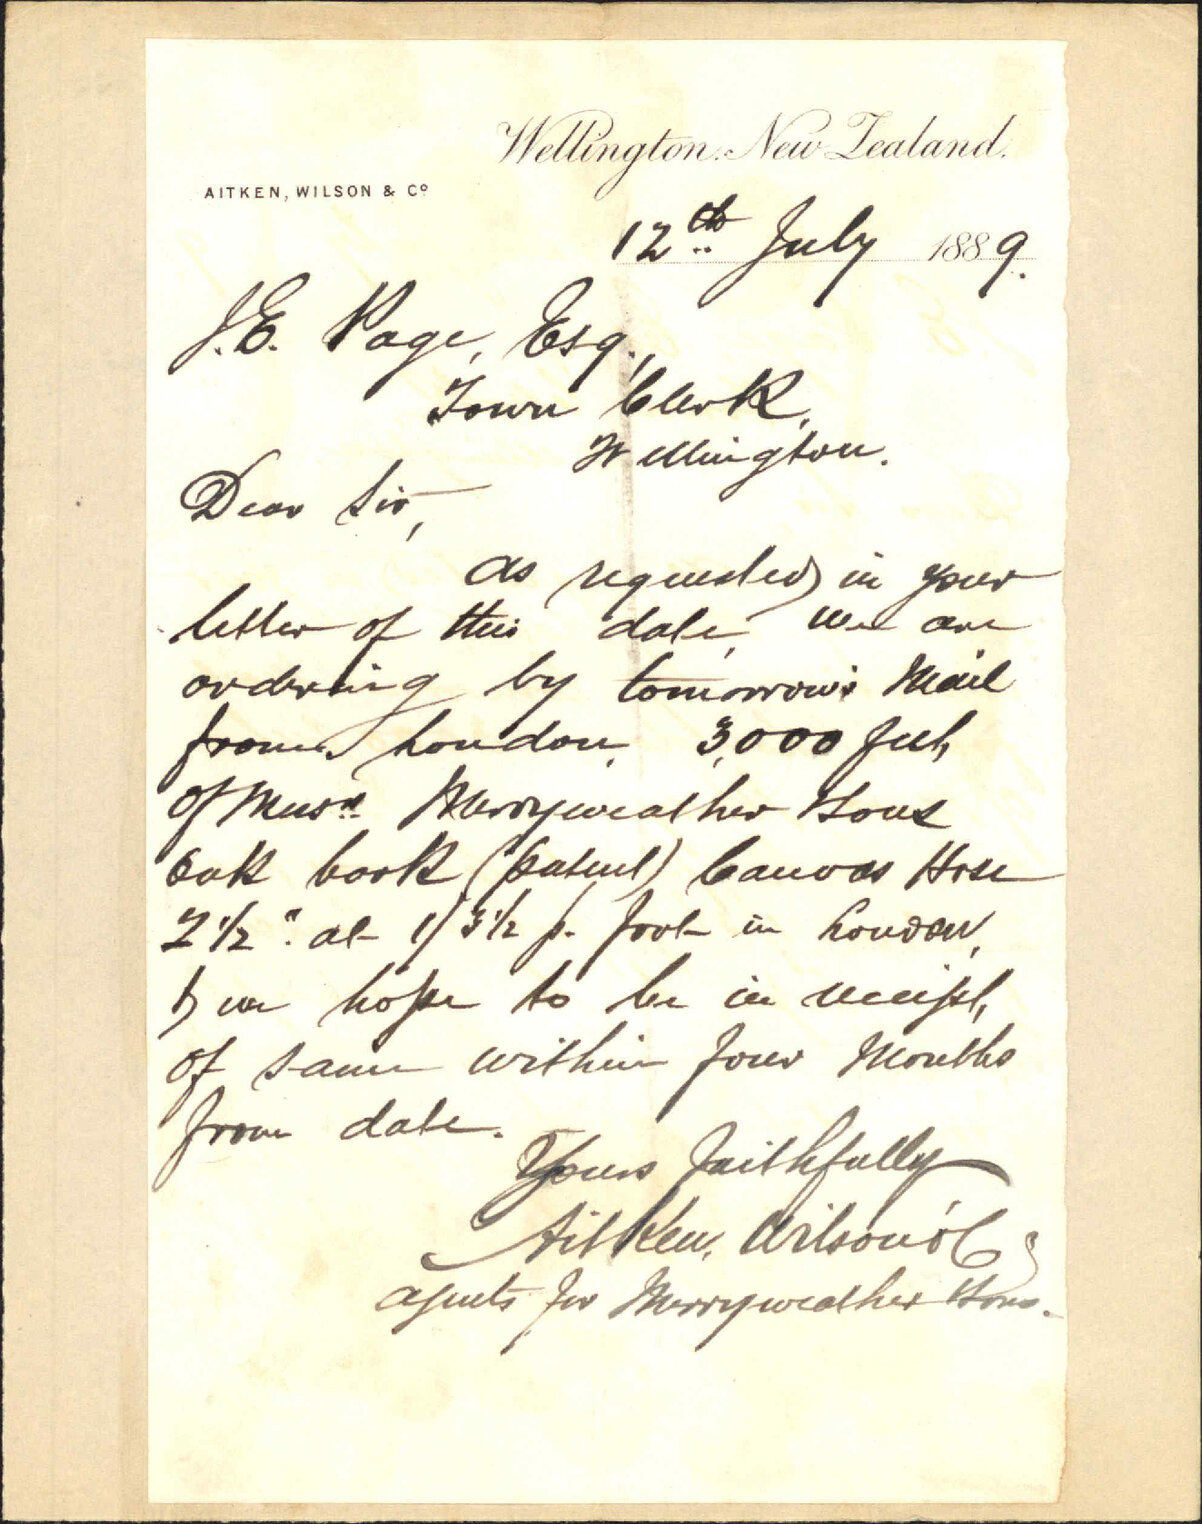 Wellington. New Zealand.
AITKEN, WILSON & Co
12th July 1889.
J.E. Page, Esq.,
Town Clerk,
Wellington.
Dear Sir,
As requested in your
letter of this date, we are
ordering by tomorrow's Mail
from London, 3,000 feet
of Messrs Merryweather & Sons
Oak bark (patent) Canvas Hose
2 1/2". at 1/3 1/2 p. foot in London,
& we hope to be in receipt,
of same within four Months
from date.
Yours faithfully
Aitken, Wilson & Co
Agents for Merryweather & Sons.